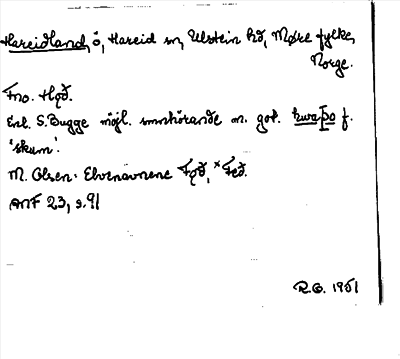 Hareidland, ö, Hareid sn, Ulstein hd, Møre fylke,
Norge.
Fno. Hǫð.
Enl. S. Bugge möjl. samhörande m. got. hwaþo f.
'skum'.
M. Olsen: Elvenavnene Fǫð, *Feð.
ANF 23, s. 91
R.G. 1951